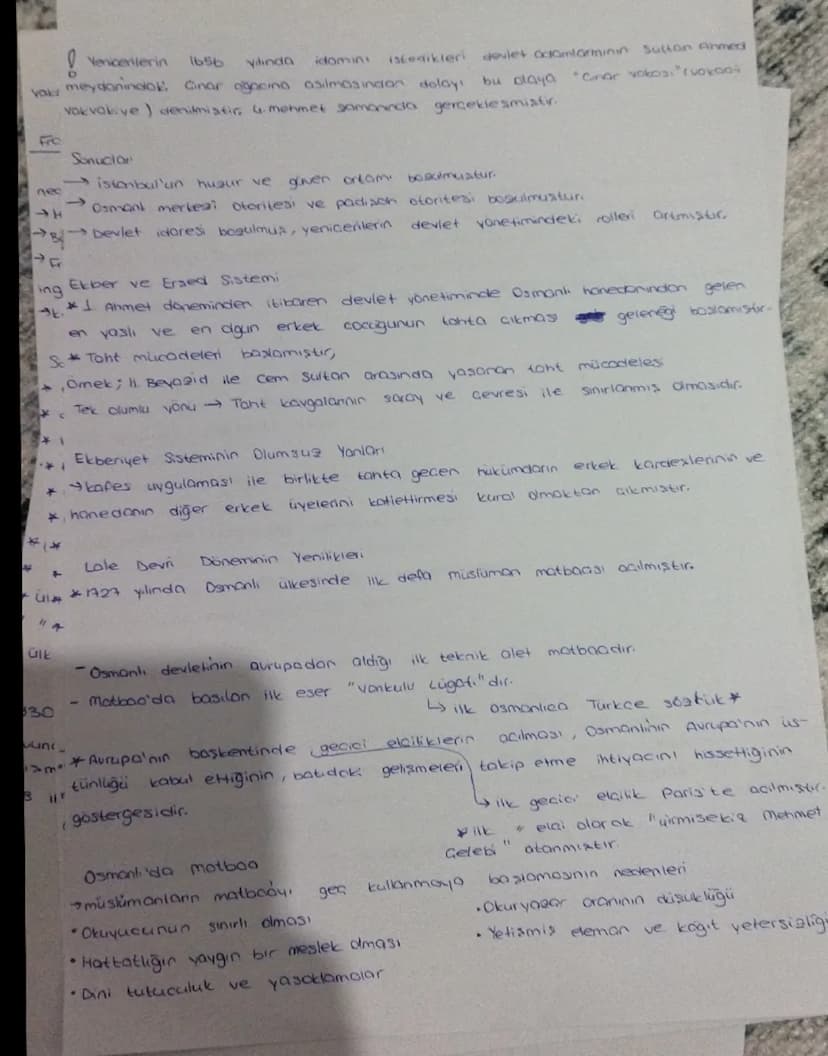 ! Yenicerilerin 1656 yılında idamını istedikleri devlet adamlarının Sultan Ahmed
meydanindaki Cınar ağacına asılmasından dolayı bu olaya "Cınar vakası" (vakaayi
vakvakiye) denilmiştir. 4. mehmet zamanında gerçekleşmiştir.
Sonuclar
→ istanbul'un huzur ve güven ortamı bozulmustur.
→ Osmanlı merkezi otoritesi ve padişah otoritesi bozulmuştur.
→ Devlet idaresi bozulmuş, yenicerilerin devlet yönetimindeki rolleri artmıştır.
Ekber ve Erşed Sistemi
* 1. Ahmet döneminden itibaren devlet yönetiminde Osmanlı hanedanından gelen
en yaslı ve en olgun erkek cocuğunun tahta cıkması geleneği baslamıstır.
* Taht mücadeleri baslamıstır,
Örnek; II. Beyazid ile Cem Sultan arasında yasanan taht mücadelesi
Tek olumlu yönü → Taht kavgalarının saray ve cevresi ile sınırlanmıs olmasıdır.
Ekberiyet Sisteminin Olumsuz Yanları
→ kafes uygulaması ile birlikte tahta gecen hükümdarın erkek kardeslerinin ve
hanedanın diğer erkek üyelerini katlettirmesi kural olmaktan cıkmıstır.
Lale Devri Döneminin Yenilikleri
* 1727 yılında Osmanlı ülkesinde ilk defa müslüman matbaası acılmıstır.
- Osmanlı devletinin avrupadan aldığı ilk teknik alet matbaadır.
- Matbaa'da basılan ilk eser "vankulu Lügatı" dır.
↳ ilk osmanlıca Türkce sözlük *
* Avrupa'nın baskentinde gecici elciliklerin acılması, Osmanlının Avrupa'nın üs-
tünlüğü kabul ettiğinin, batıdaki gelismeleri takip etme ihtiyacını hissettiginin
göstergesidir.
↳ ilk gecici elcilik Paris'te acılmıstır.
* ilk " elci olarak "yirmisekiz Mehmet
Celebi" atanmıstır.
Osmanlı'da matbaa
→ müslümanların matbaayı geç kullanmaya baslamasının nedenleri
• Okuyucunun sınırlı olması
• Okuryazar oranının düsüklüğü
• Hattatlığın yaygın bir meslek olması
• Yetismis eleman ve kağıt yetersizliği
• Dini tutuculuk ve yasaklamalar